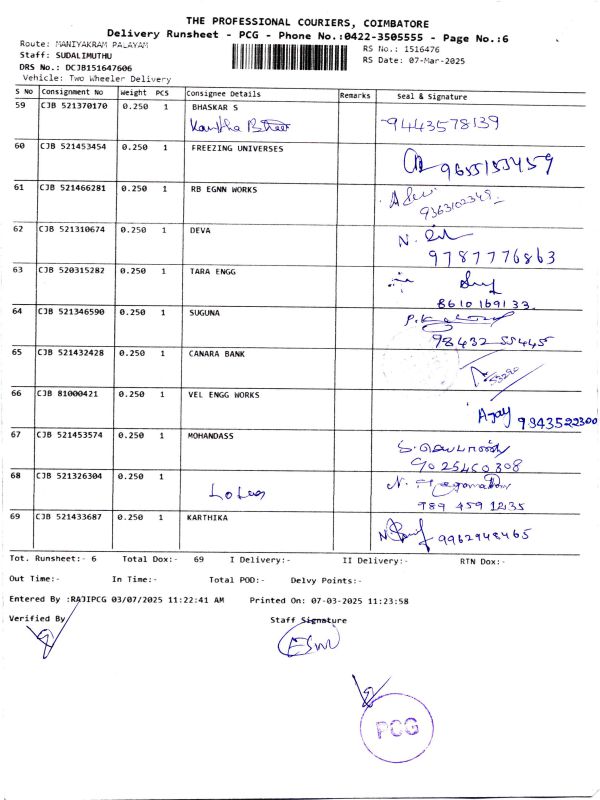 THE PROFESSIONAL COURIERS, COIMBATORE
Delivery Runsheet - PCG - Phone No.:0422-3505555 - Page No.:6
Route: MANIYAKRAM PALAYAM
RS No.: 1516476
Staff: SUDALIMUTHU
RS Date: 07-Mar-2025
DRS No.: DCJB151647606
Vehicle: Two Wheeler Delivery
S No Consignment No Weight PCS Consignee Details Remarks Seal & Signature
59 CJB 521370170 0.250 1 BHASKAR S
9443578139
60 CJB 521453454 0.250 1 FREEZING UNIVERSES
9655153459
61 CJB 521466281 0.250 1 RB EGNN WORKS
62 CJB 521310674 0.250 1 DEVA
9787776863
63 CJB 520315282 0.250 1 TARA ENGG
8610169133
64 CJB 521346590 0.250 1 SUGUNA
98432 55445
65 CJB 521432428 0.250 1 CANARA BANK
66 CJB 81000421 0.250 1 VEL ENGG WORKS
Ajay 9343522300
67 CJB 521453574 0.250 1 MOHANDASS
9025460308
68 CJB 521326304 0.250 1
989 459 1235
69 CJB 521433687 0.250 1 KARTHIKA
9962948465
Tot. Runsheet:- 6 Total Dox:- 69 I Delivery:- II Delivery:- RTN Dox:-
Out Time:- In Time:- Total POD:- Delvy Points:-
Entered By :RAJIPCG 03/07/2025 11:22:41 AM Printed On: 07-03-2025 11:23:58
Verified By
Staff Signature
PCG